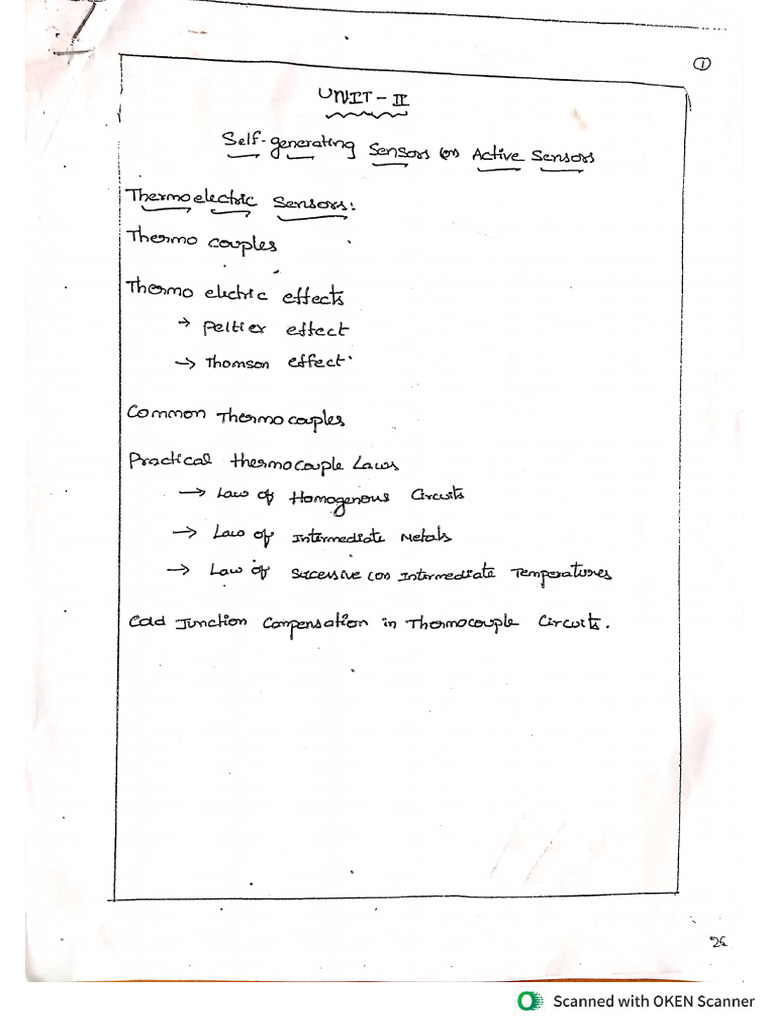 ①
UNIT - II
Self-generating Sensors (or) Active Sensors
Thermoelectric Sensors:
Thermo couples
Thermo electric effects
→ Peltier effect
→ Thomson effect
Common Thermocouples
Practical thermocouple Laws
→ Law of Homogenous Circuits
→ Law of Intermediate Metals
→ Law of Sucessive (or) Intermediate Temperatures
Cold Junction Compensation in Thermocouple Circuits.
26
Scanned with OKEN Scanner